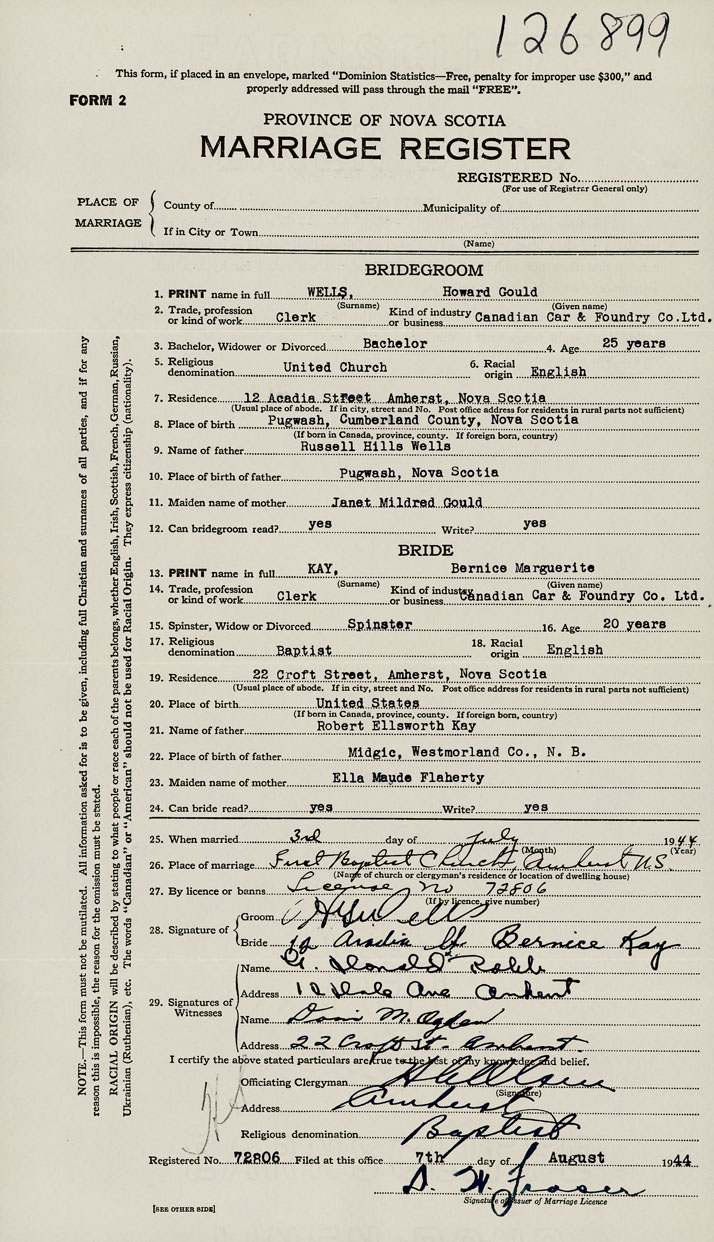 126899
This form, if placed in an envelope, marked "Dominion Statistics—Free, penalty for improper use $300," and
properly addressed will pass through the mail "FREE".
FORM 2
PROVINCE OF NOVA SCOTIA
MARRIAGE REGISTER
REGISTERED No.
(For use of Registrar General only)
PLACE OF MARRIAGE
County of Municipality of
If in City or Town
(Name)
BRIDEGROOM
1. PRINT name in full WELLS, Howard Gould
(Surname) (Given name)
2. Trade, profession or kind of work Clerk Kind of industry or business Canadian Car & Foundry Co.Ltd.
3. Bachelor, Widower or Divorced Bachelor 4. Age 25 years
5. Religious denomination United Church 6. Racial origin English
7. Residence 12 Acadia Street Amherst, Nova Scotia
(Usual place of abode. If in city, street and No. Post office address for residents in rural parts not sufficient)
8. Place of birth Pugwash, Cumberland County, Nova Scotia
(If born in Canada, province, county. If foreign born, country)
9. Name of father Russell Hills Wells
10. Place of birth of father Pugwash, Nova Scotia
11. Maiden name of mother Janet Mildred Gould
12. Can bridegroom read? yes Write? yes
BRIDE
13. PRINT name in full KAY, Bernice Marguerite
(Surname) (Given name)
14. Trade, profession or kind of work Clerk Kind of industry or business Canadian Car & Foundry Co. Ltd.
15. Spinster, Widow or Divorced Spinster 16. Age 20 years
17. Religious denomination Baptist 18. Racial origin English
19. Residence 22 Croft Street, Amherst, Nova Scotia
(Usual place of abode. If in city, street and No. Post office address for residents in rural parts not sufficient)
20. Place of birth United States
(If born in Canada, province, county. If foreign born, country)
21. Name of father Robert Ellsworth Kay
22. Place of birth of father Midgic, Westmorland Co., N. B.
23. Maiden name of mother Ella Maude Flaherty
24. Can bride read? yes Write? yes
25. When married 3rd day of July 1944
(Month) (Year)
26. Place of marriage First Baptist Church, Amherst N.S.
(Name of church or clergyman's residence or location of dwelling house)
27. By licence or banns License No 72806
(If by licence, give number)
28. Signature of
Groom Wells
Bride Bernice Kay
29. Signatures of Witnesses
Name Donald
Address Ave Amherst
Name M. Ogden
Address 22 Croft St. Amherst.
I certify the above stated particulars are true to the best of my knowledge and belief.
Officiating Clergyman
(Signature)
Address Amherst
Religious denomination Baptist
Registered No. 72806 Filed at this office 7th day of August 1944
D. W. Fraser
Signature of Issuer of Marriage Licence
[SEE OTHER SIDE]
NOTE.—This form must not be mutilated. All information asked for is to be given, including full Christian and surnames of all parties, and if for any
reason this is impossible, the reason for the omission must be stated.
RACIAL ORIGIN will be described by stating to what people or race each of the parents belongs, whether English, Irish, Scottish, French, German, Russian,
Ukrainian (Ruthenian), etc. The words "Canadian" or "American" should not be used for Racial Origin. They express citizenship (nationality).